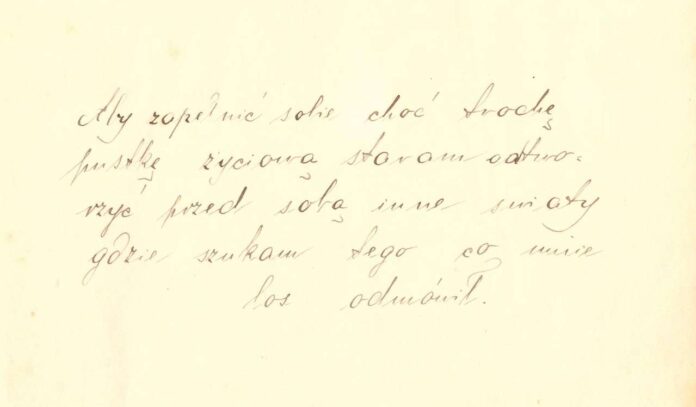 Aby zapełnić sobie choć trochę
pustkę życiową staram odtwo-
rzyć przed sobą inne swiaty
gdzie szukam tego co mnie
los odmówił.